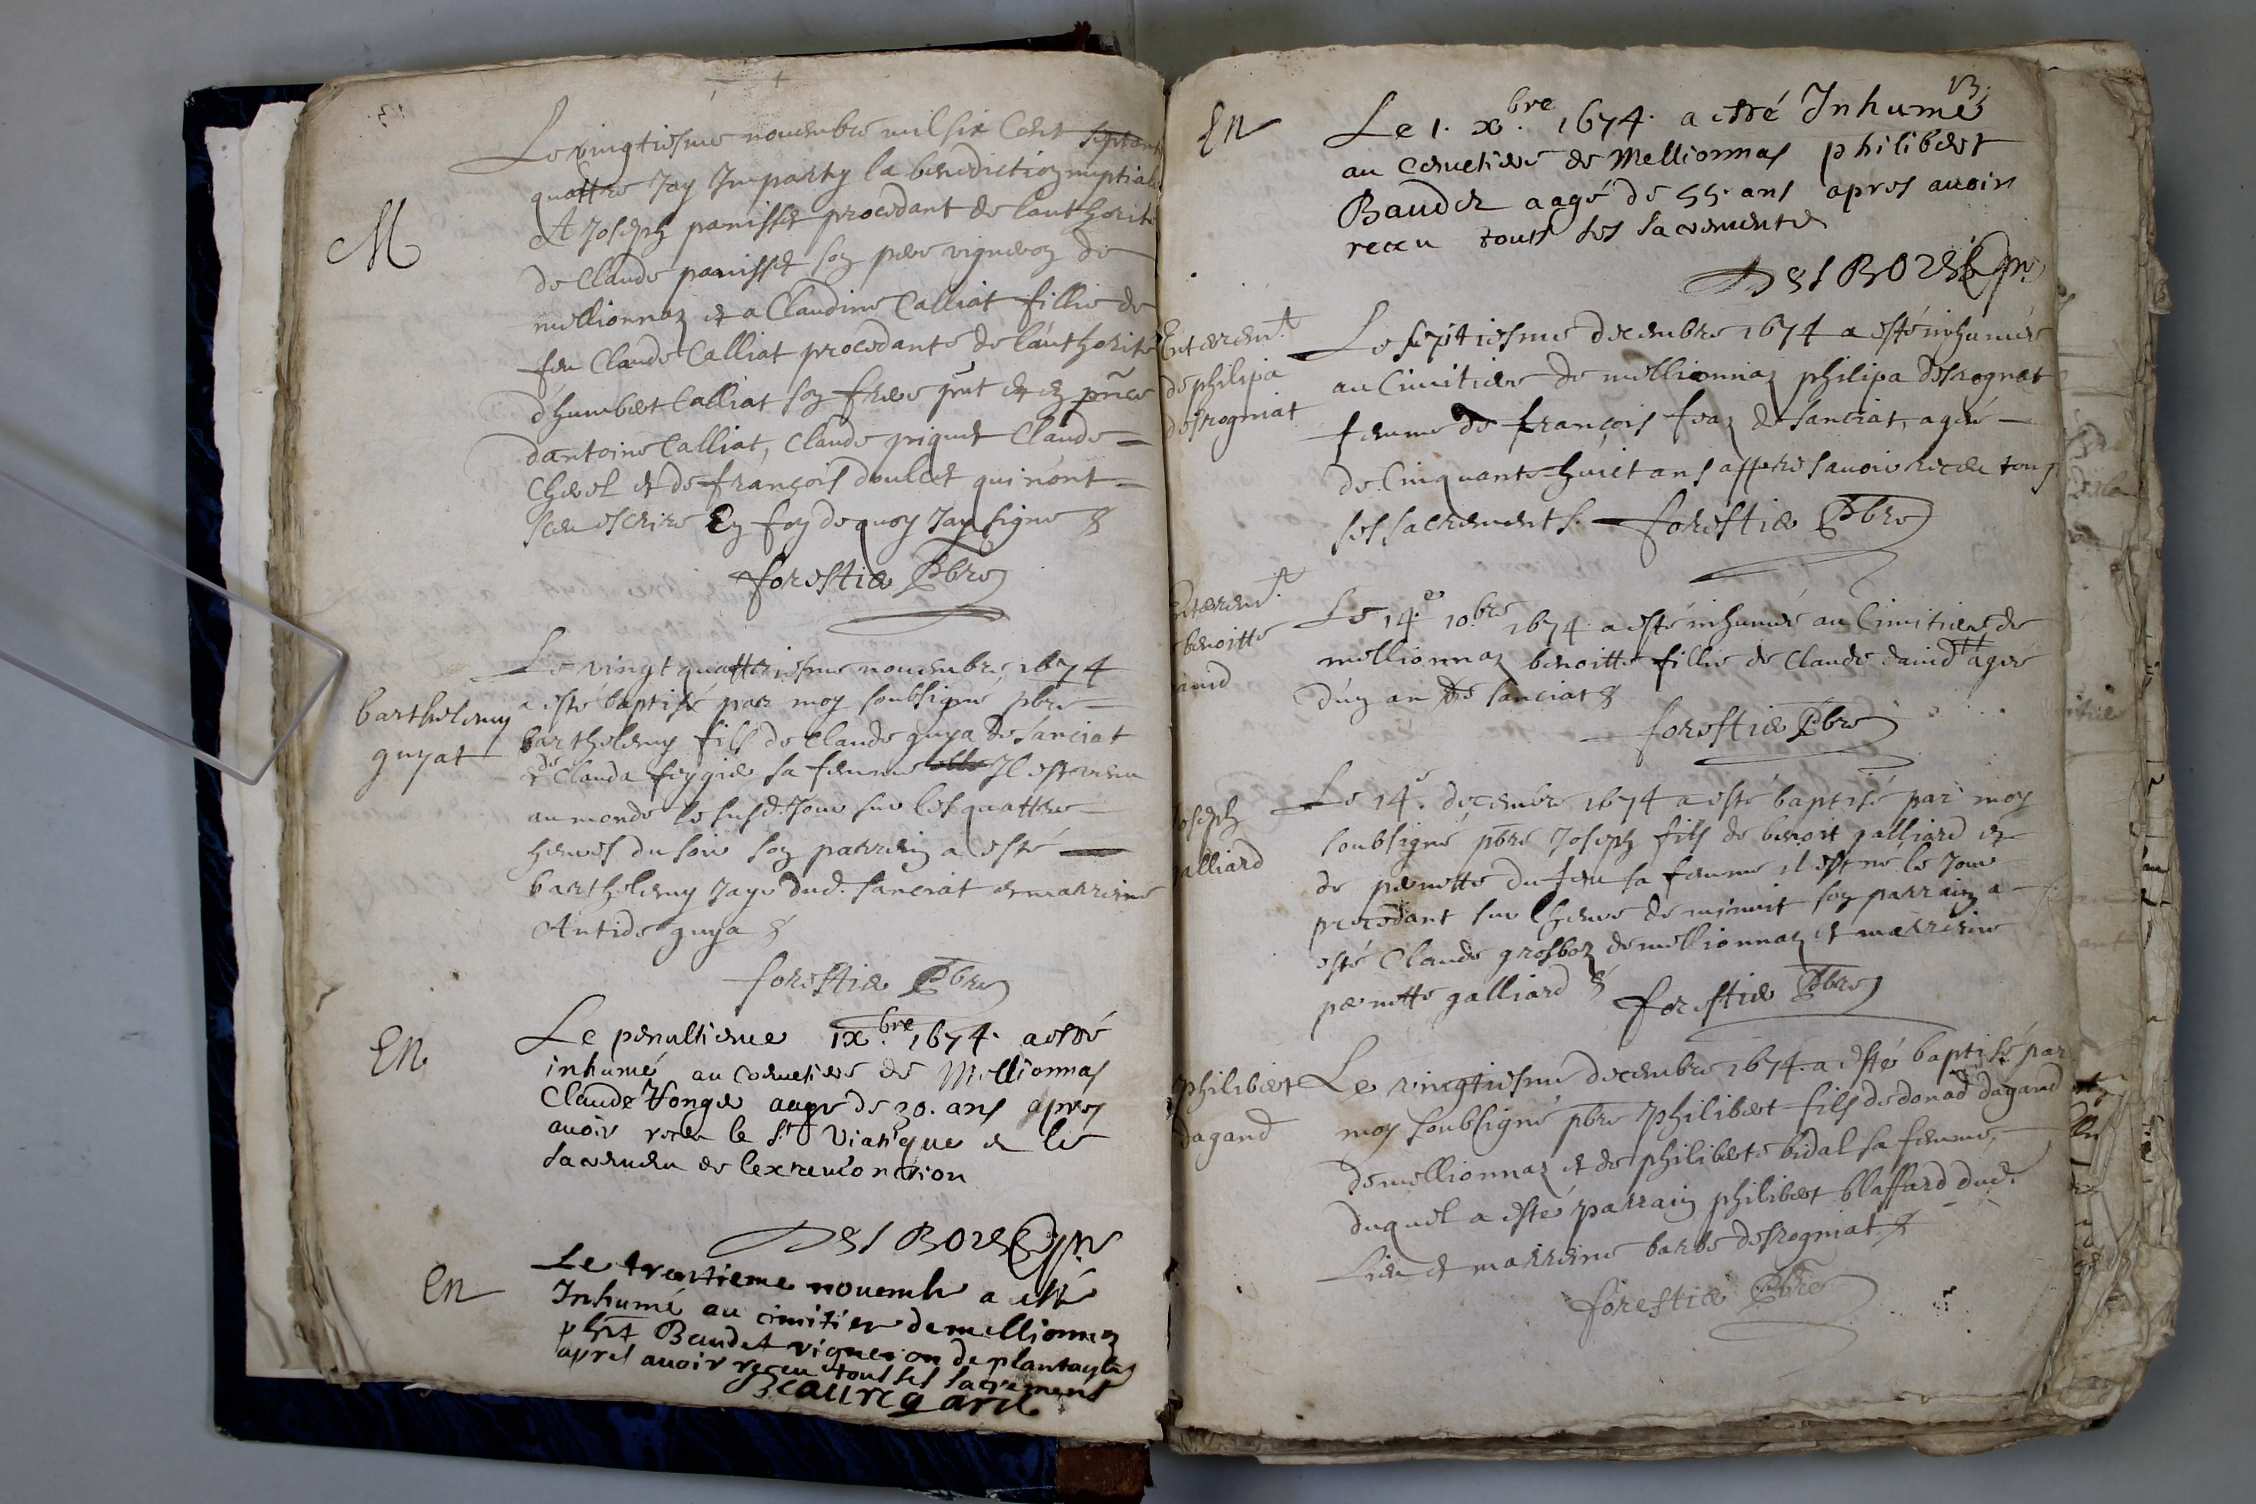 Le vingtiesme novembre mil six Cent septante
quattre Jay Imparty la benediction nuptiale
M
A Joseph panisset procedant de lauthorité
de Claude panisset son pere vigneron de
mellionnaz et a Claudine Calliat fillie de
feu Claude Calliat procedante de l'authorité
d'humbert Calliat son frere pnt et en pnce
dantoine Calliat, Claude piquet Claude
Chevel et de françois doulcet qui n'ont
sceu escrire En foy de quoy Jay signe
forestier Pbre
Le vingt quattriesme novembre 1674
a esté baptisé par moy soubsigne pbre
barthelemy
guyat
barthelemy fils de Claude guya de Sanciat
et de Clauda feygie sa femme Il est venu
au monde le susd. Jour sur les quattre
heures du soir son parrein a esté
barthelemy Jaye dud. sanciat et marreine
Antide guya
forestier Pbre
EN
Le penultieme IX.bre 1674. a esté
inhumé au cemetiere de Mellionnas
Claude Vonge aagé de 30. ans apres
avoir receu le St. Viatique et le
sacremen de lextremonction
DESBORES
EN
Le trentieme novemb a esté
Inhumé au cimitier de mellionnaz
phbt Baudet vigneron de plantaglay
apres avoir receu tous ses sacrement
Beauregard
13.
EN
Le 1. X.bre 1674. a esté Inhumé
au Cemetiere de Mellionnas philibert
Baudet aagé de 55. ans apres avoir
receu tous les sacrements
DESBORES
Enterem.t
de philipa
desrogniat
Le septiesme decembre 1674 a esté inhumée
au Cimitiere de mellionnaz philipa desrogniat
femme de françois feaz de sanciat, agée
de Cinquante huict ans appres avoir receu tous
ses sacrements. forestier Pbre
Enterem.t
benoitte
david
Le 14.e 10.bre 1674 a esté inhumée au Cimitiere de
mellionnaz benoitte fillie de Claude david agée
d'un an de sanciat
forestier Pbre
Joseph
galliard
Le 14.e decembre 1674 a esté baptisé par moy
soubsigné pbre Joseph fils de benoit galliard et
de pernette du feu sa femme il est ne le Jour
precedant sur lheure de minuit son parrain a
esté Claude grosboz de mellionnaz et marreine
pernette galliard forestier Pbre
philibert
dagand
Le vingtiesme decembre 1674. a esté baptisé par
moy soubsigné pbre philibert fils de donad dagand
de mellionnaz et de philiberte bidal sa femme,
duquel a esté parrain philibert blaffard dud.
Lieu et marreine barbe desrogniat
forestier Pbre